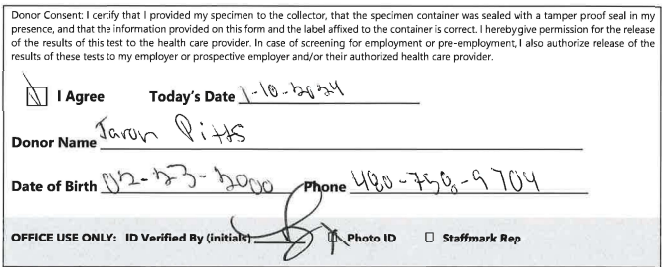 Donor Consent: I certify that I provided my specimen to the collector, that the specimen container was sealed with a tamper proof seal in my
presence, and that the information provided on this form and the label affixed to the container is correct. I hereby give permission for the release
of the results of this test to the health care provider. In case of screening for employment or pre-employment, I also authorize release of the
results of these tests to my employer or prospective employer and/or their authorized health care provider.
I Agree Today's Date 1-10-2024
Donor Name Jaron Pitts
Date of Birth 02-23-2000 Phone 480-750-9704
OFFICE USE ONLY: ID Verified By (initials) Photo ID Staffmark Rep